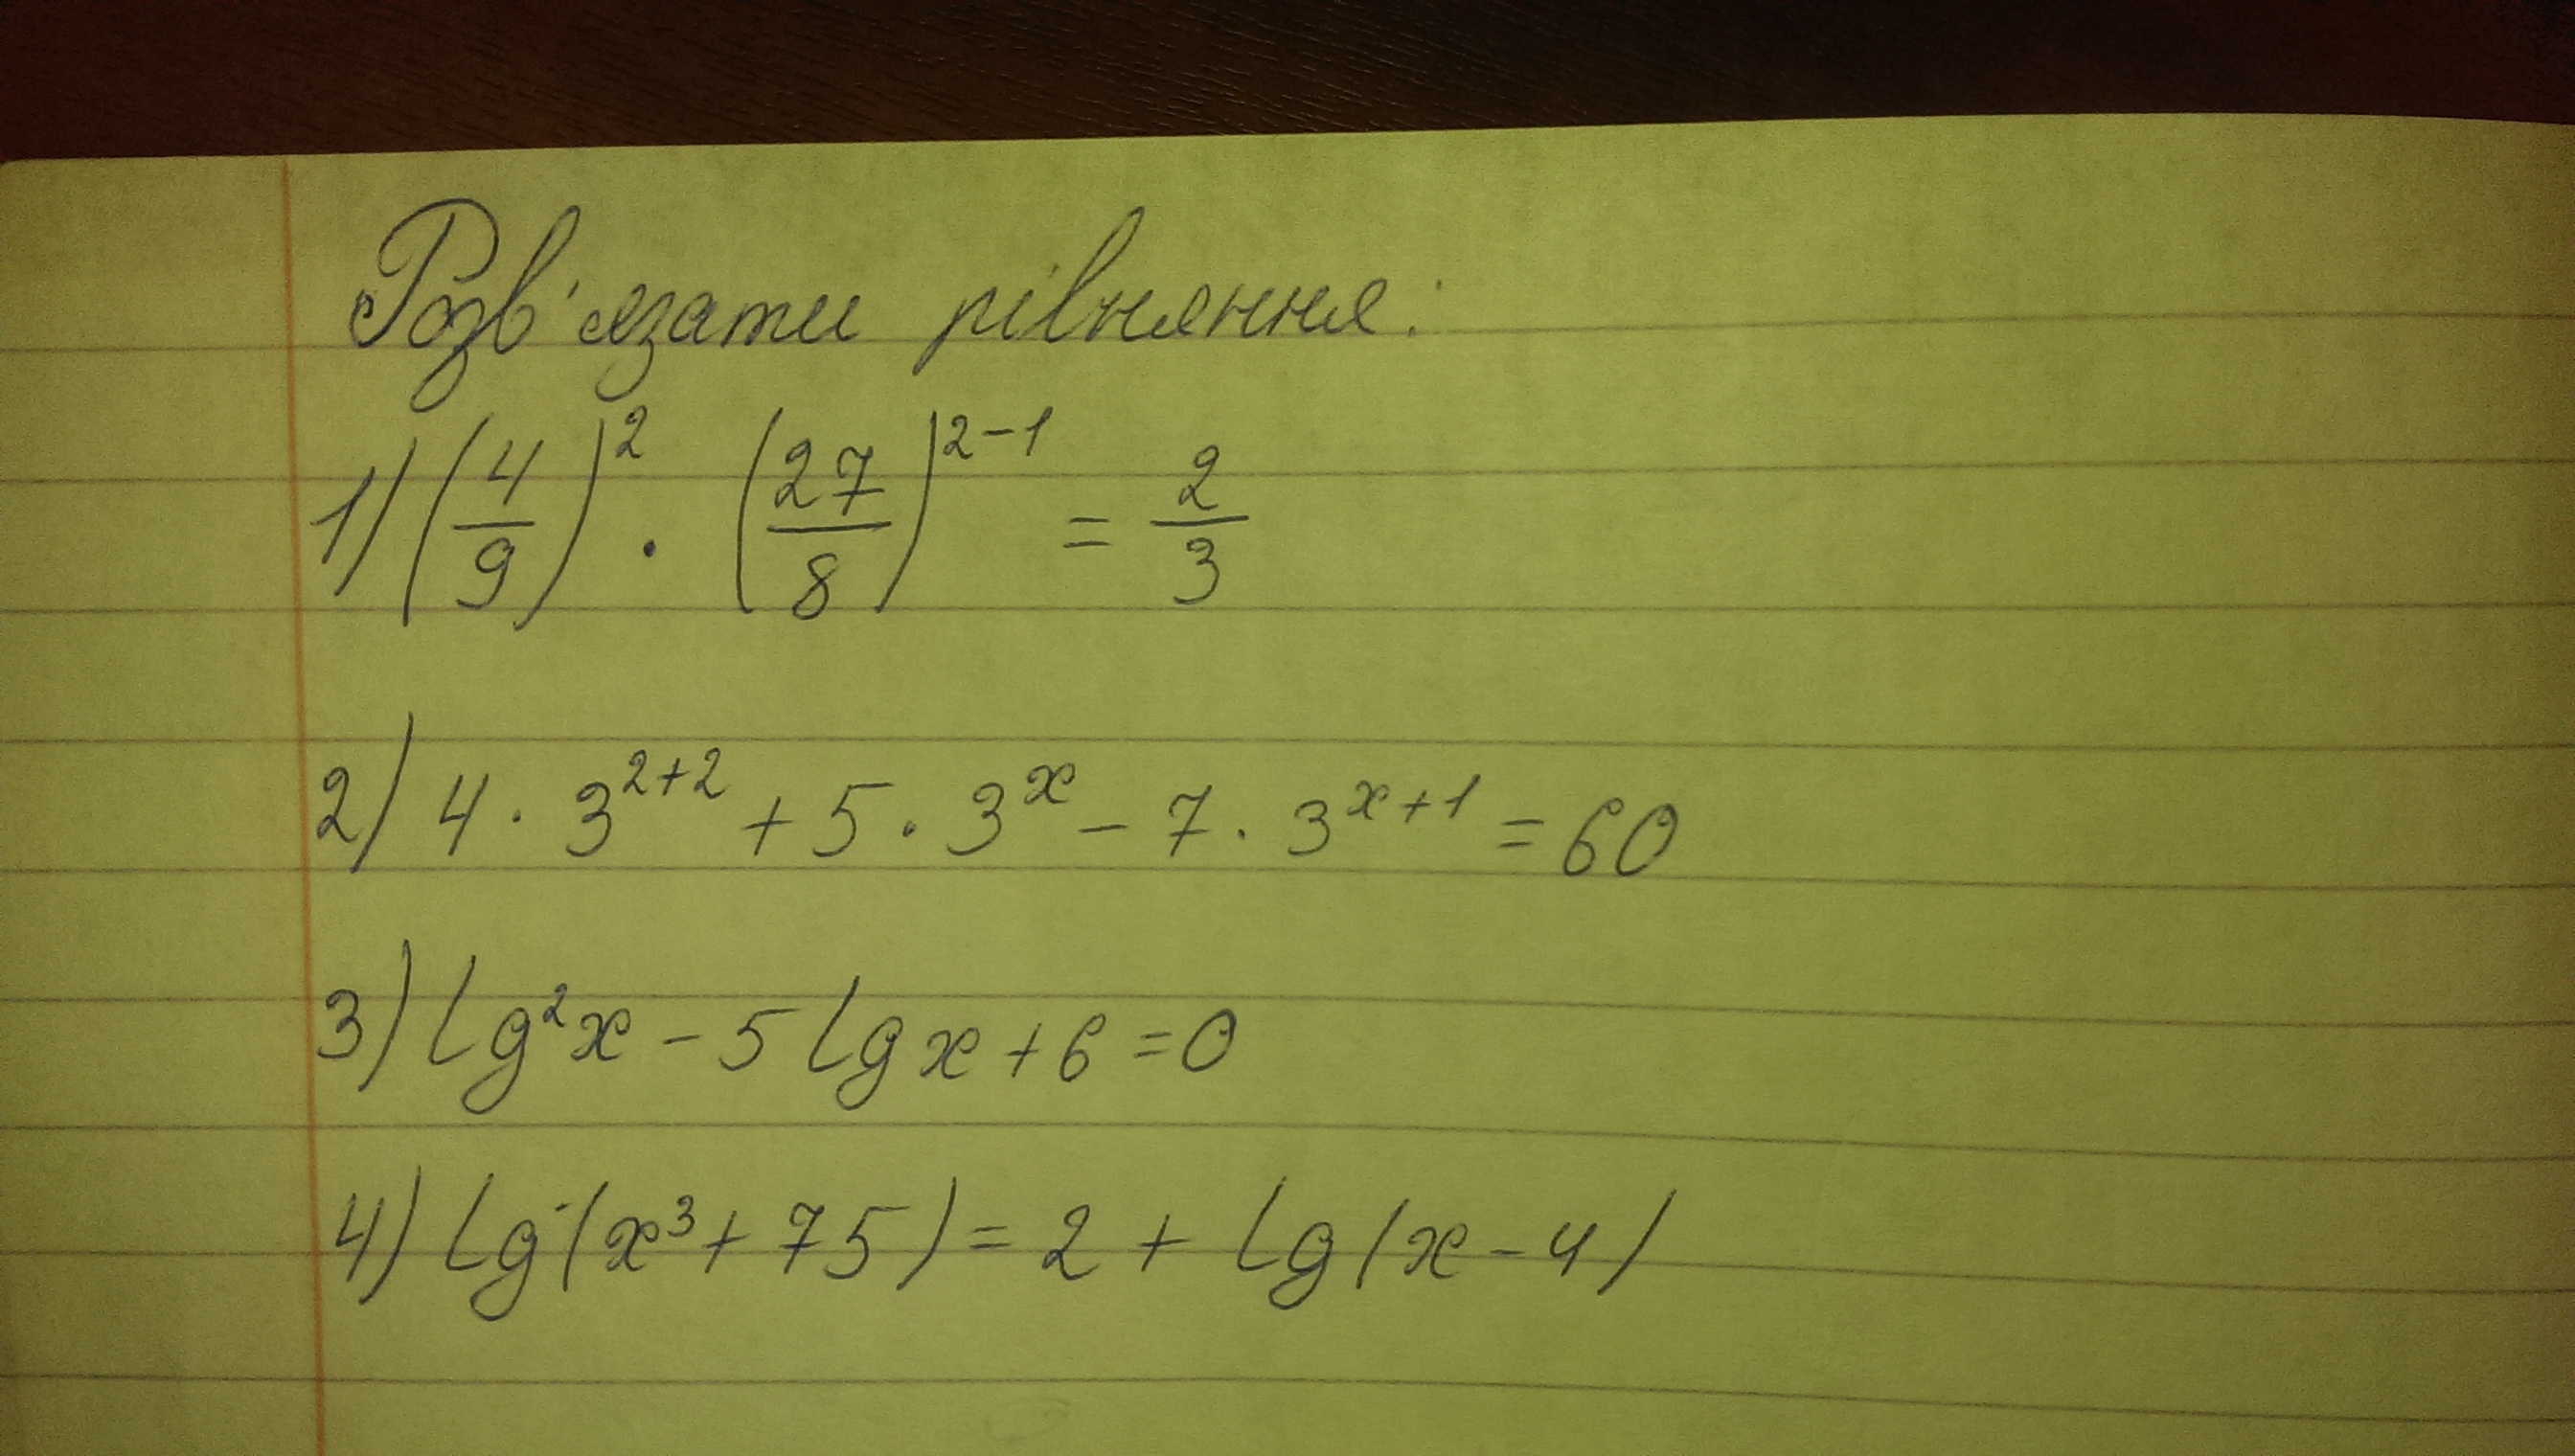 Розв'язати рівняння:
1) (4/9)² · (27/8)²⁻¹ = 2/3
2) 4 · 3²⁺² + 5 · 3ˣ - 7 · 3ˣ⁺¹ = 60
3) lg²x - 5 lg x + 6 = 0
4) lg (x³ + 75) = 2 + lg (x - 4)